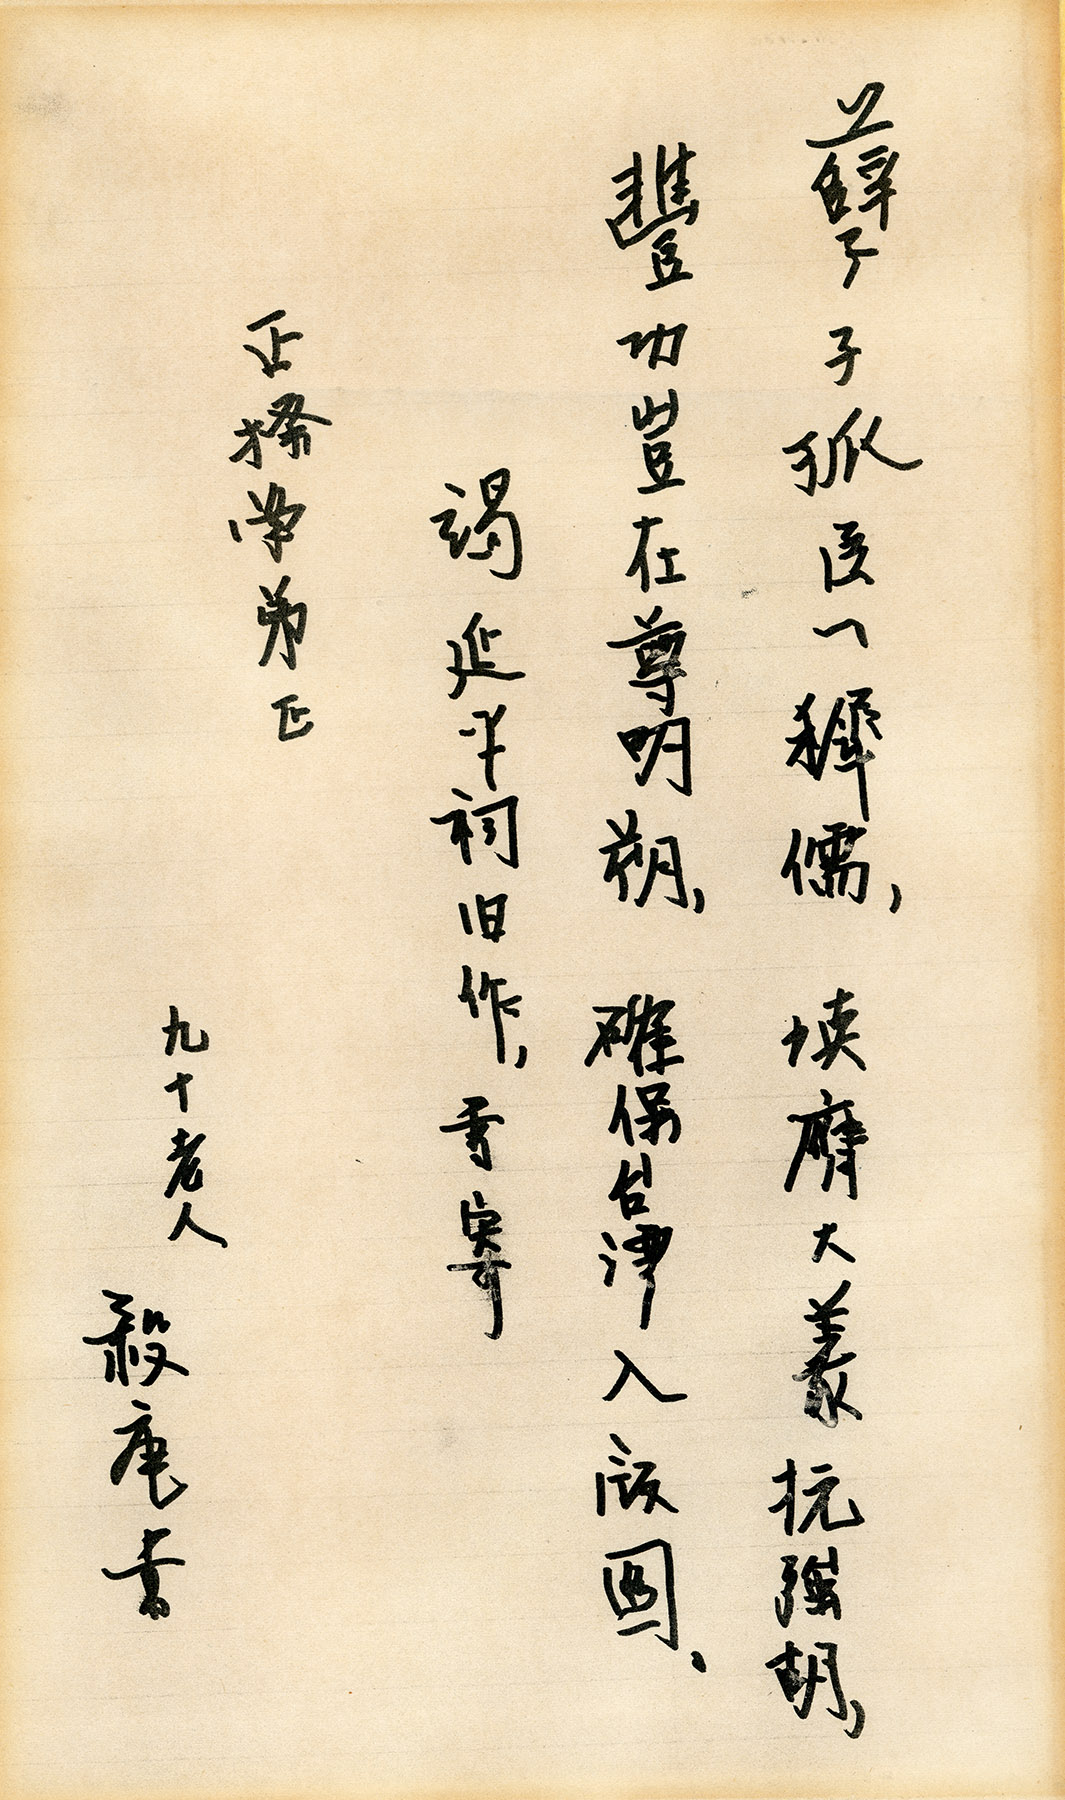 孽子孤臣一穉儒，填膺大義抗強胡，
豐功豈在尊明朔，確保台湾入版圖、
謁延平祠旧作，寄
正学弟正
九十老人
毅庵書